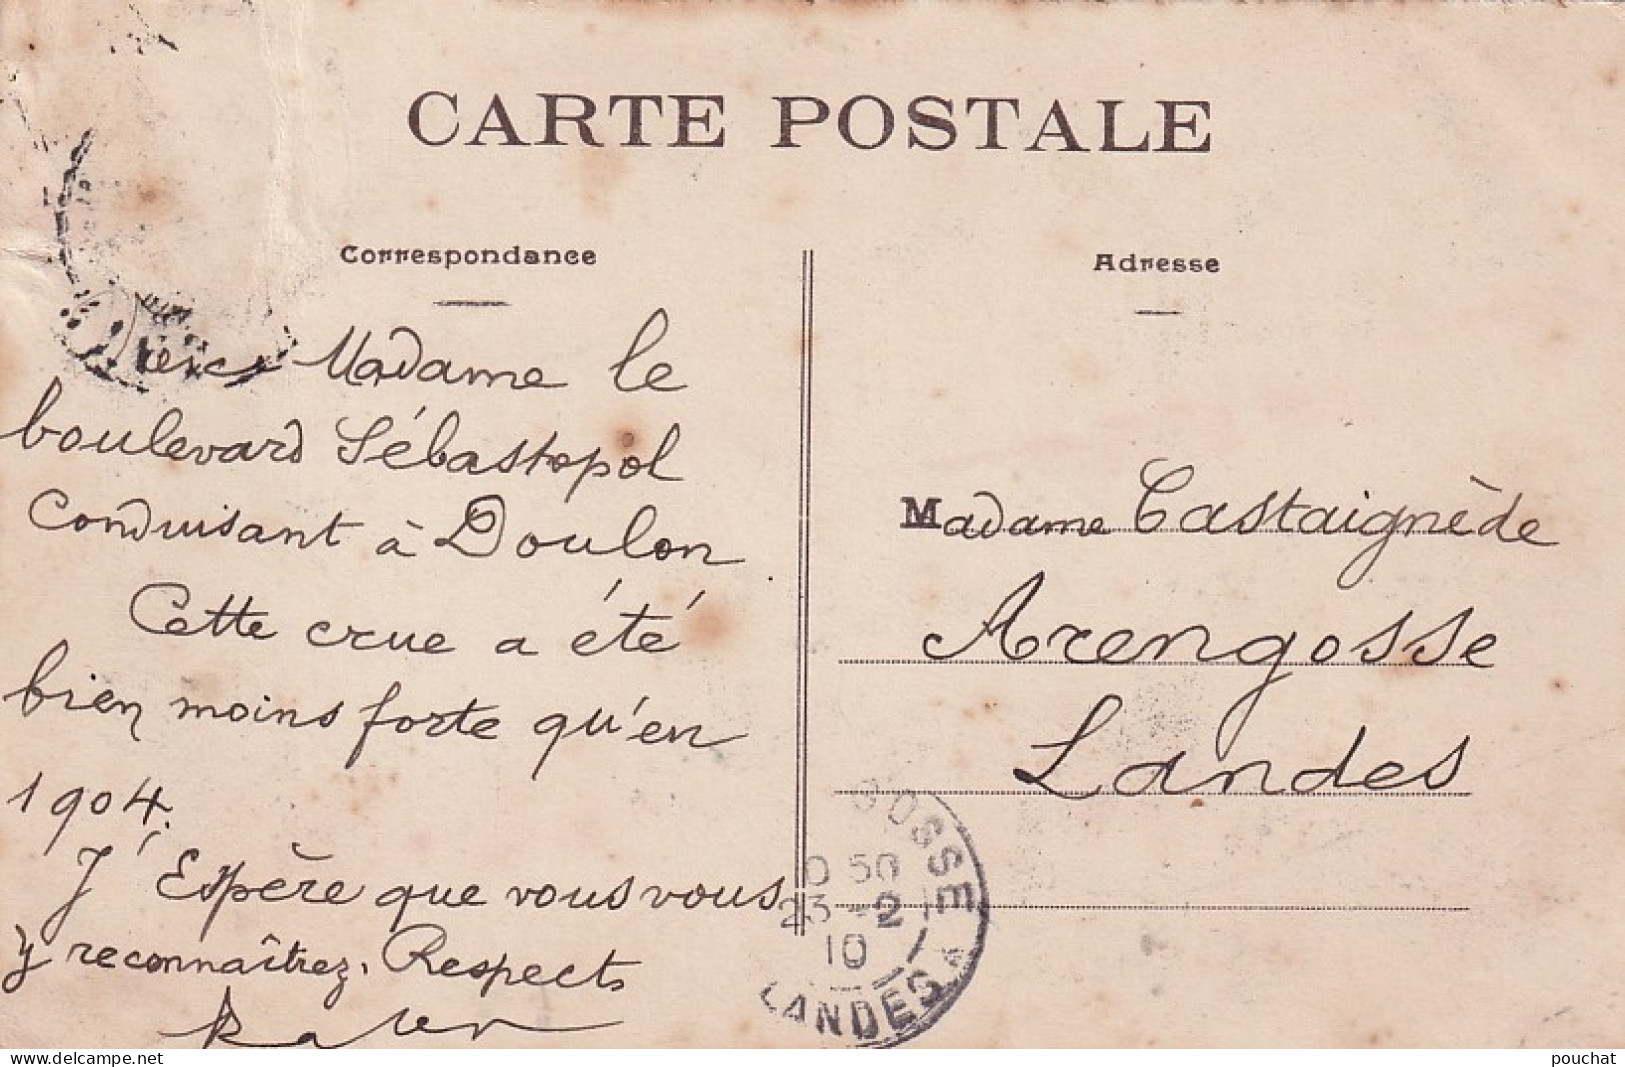 CARTE POSTALE
Correspondance
Adresse
Madame le
boulevard Sébastopol
conduisant à Doulon
Cette crue a été
bien moins forte qu'en
1904.
J'Espère que vous vous
y reconnaîtrez. Respects
Madame Castaignède
Arengosse
Landes
GOSSE
0 50
23 -2
10
LANDES
www.delcampe.net
pouchat